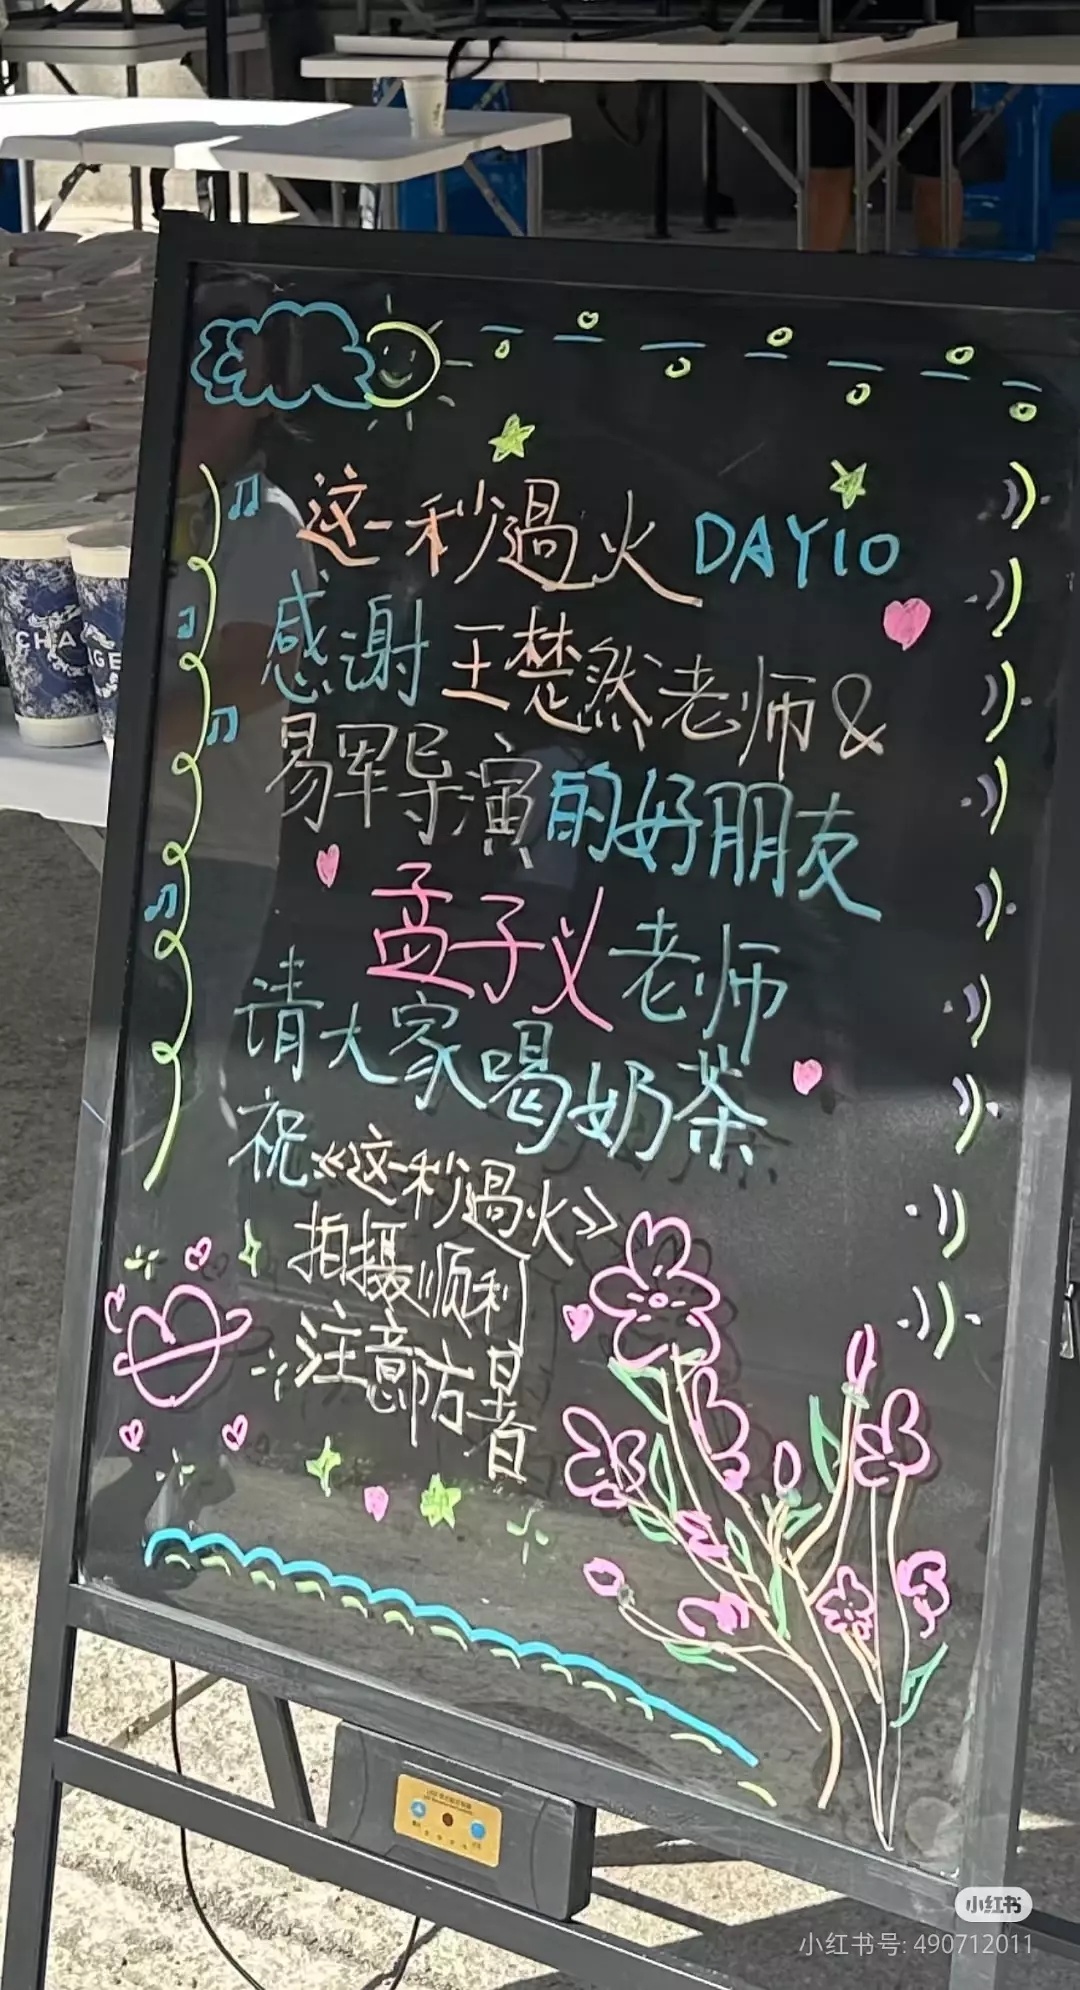 这一秒過火 DAY10
感谢王楚然老师&
易军导演的好朋友
孟子义老师
请大家喝奶茶
祝《这一秒過火》
拍摄顺利
注意防暑
CHA
AGE
小红书
小红书号: 490712011